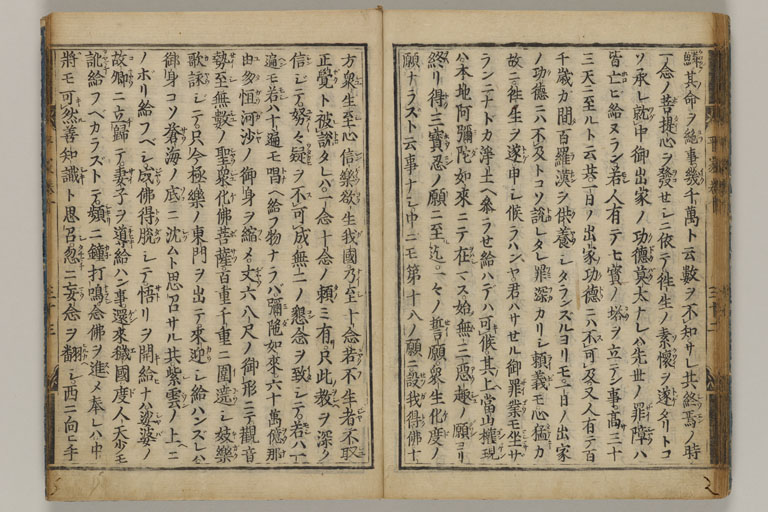 鱗其命ヲ絶事幾千萬ト云數ヲ不知サレ共終焉ノ時
一念ノ菩提心ヲ發セシニ依テ往生ノ素懷ヲ遂タリトコ
ソ承レ就中御出家ノ功德莫太ナレハ先世ノ罪障ハ
皆亡ヒ給ヌラン若人有テ七寶ノ塔ヲ立テン事高三十
三天ニ至ルト云共一日ノ出家功德ニハ不可及又人有テ百
千歳カ間百羅漢ヲ供養シタランスルヨリモ一日ノ出家
ノ功德ニハ不及トコソ說レタレ罪深カリシ賴義モ心猛カ
故ニ往生ヲ遂申シ候ランハヤ君ハサセル御罪業モ坐サ
ランニナトカ淨土ヘ參ラせ給ハテハ可候其上當山權現
ハ本地阿彌陀如來ニテ在マス始無三惡趣ノ願ヨリ
終リ得三寶忍ノ願ニ至迄一々ノ誓願衆生化度ノ
願ナラスト云事ナシ中ニモ第十八ノ願ニ設我得佛十
方衆生至心信樂欲生我國乃至十念若不生者不取
正覺ト被說タレハ一念十念ノ賴ミ有只此敎ヲ深ク
信シテ努々疑ヲ不可成無二ノ懇念ヲ致シテ若ハ一
遍モ若ハ十遍モ唱ヘ給フ物ナラハ彌陀如來六十萬億那
由多恒河沙ノ御身ヲ縮メ丈六八尺ノ御形ニテ觀音
勢至無數ノ聖衆化佛菩薩百重千重ニ圍遶シ妓樂
歌詠シテ只今極樂ノ東門ヲ出テ來迎シ給ハンスレハ
御身コソ蒼海ノ底ニ沈ムト思召サル共紫雲ノ上ニ
ノホリ給フベシ成佛得脫シテ悟リヲ開給ナハ娑婆ノ
故鄕ニ立歸テ妻子ヲ導給ハン事還來穢國度人天少モ
訛給フヘカラストテ頻ニ鐘打鳴念佛ヲ進メ奉レハ中
將モ可然善知識ト思召忽ニ妄念ヲ翻シ西ニ向ヒ手